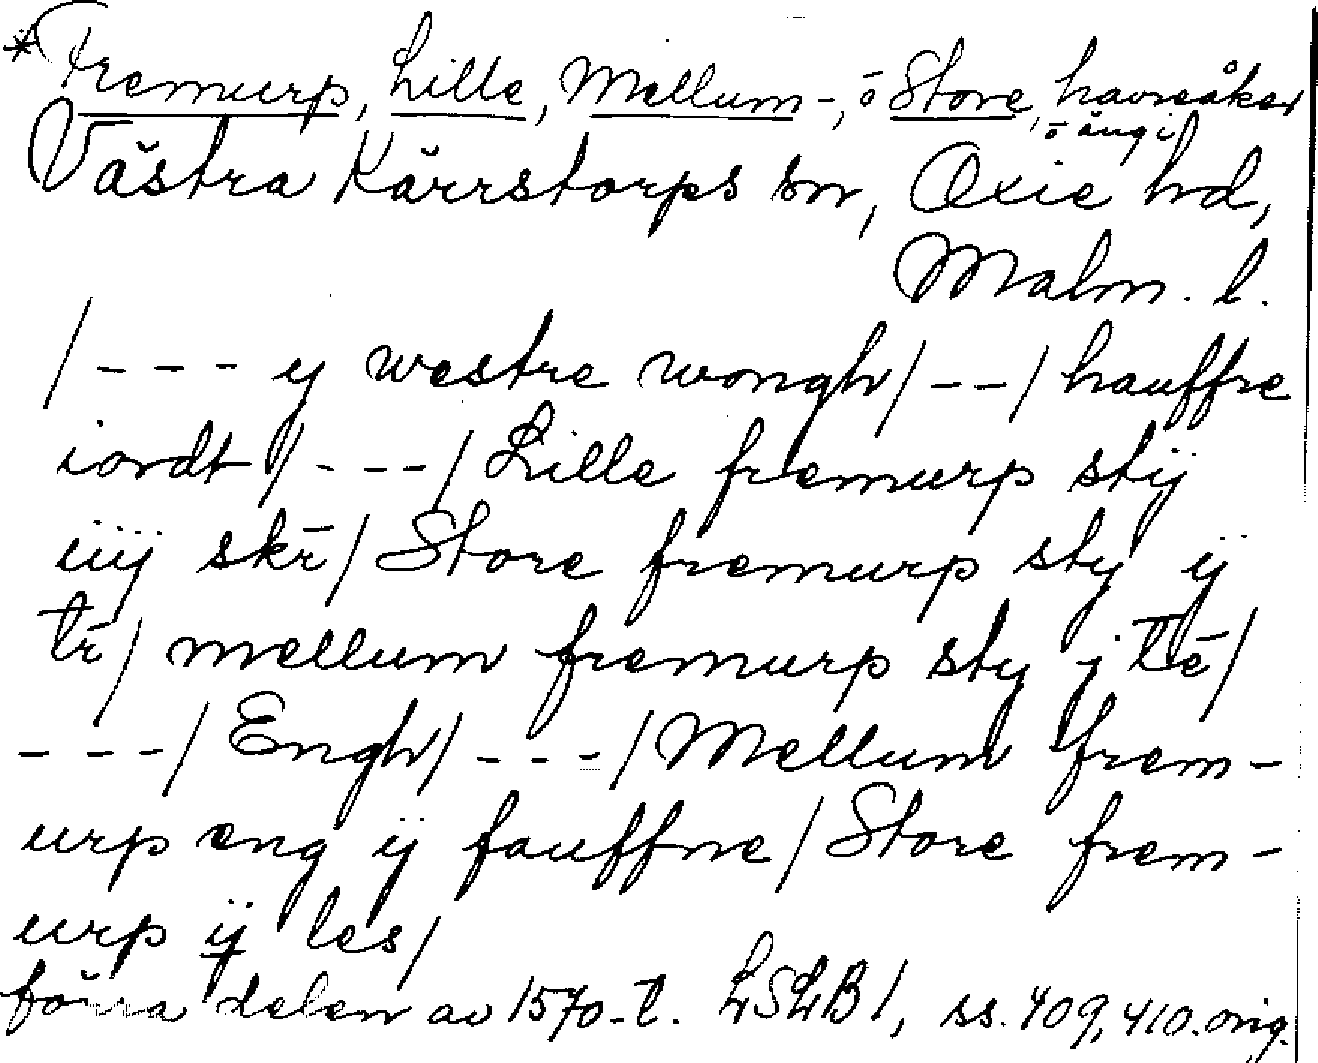 *Fremurp, Lille, Mellum-, ō Store, havreåker
ō äng i
Västra Kärrstorps sn, Oxie hd,
Malm. l.
/--- y westre wongh/--/hauffre
iordt/---/Lille fremurp stÿ
iiÿ skr̄/Store fremurp sty ÿ
tr̄/mellum fremurp sty j
---/Engh/---/Mellum frem-
urp eng ÿ fauffne/Store frem-
urp ÿ les/
förra delen av 1570-t. LSLB1, ss. 409, 410. orig.